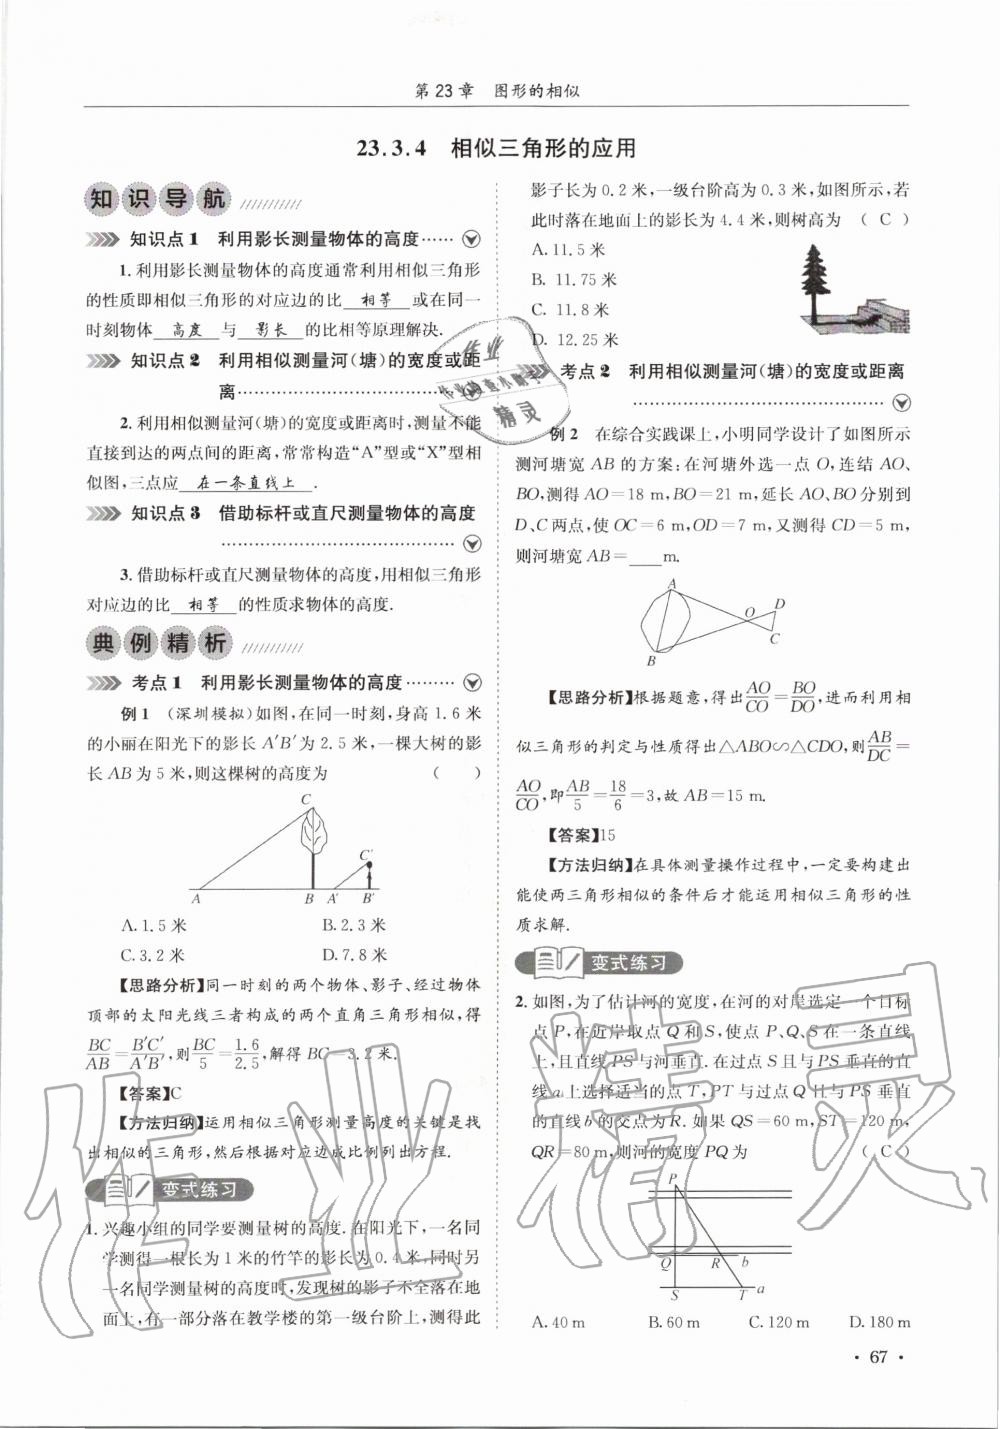 第23章 图形的相似
23.3.4 相似三角形的应用
知识导航
知识点1 利用影长测量物体的高度……
1.利用影长测量物体的高度通常利用相似三角形
的性质即相似三角形的对应边的比 相等 或在同一
时刻物体 高度 与 影长 的比相等原理解决.
知识点2 利用相似测量河(塘)的宽度或距
离……
2.利用相似测量河(塘)的宽度或距离时,测量不能
直接到达的两点间的距离,常常构造“A”型或“X”型相
似图,三点应 在一条直线上 .
知识点3 借助标杆或直尺测量物体的高度
……
3.借助标杆或直尺测量物体的高度,用相似三角形
对应边的比 相等 的性质求物体的高度.
典例精析
考点1 利用影长测量物体的高度………
例1 (深圳模拟)如图,在同一时刻,身高1.6米
的小丽在阳光下的影长A′B′为2.5米,一棵大树的影
长AB为5米,则这棵树的高度为 ( )
C
C′
A B A′ B′
A.1.5米 B.2.3米
C.3.2米 D.7.8米
【思路分析】同一时刻的两个物体、影子、经过物体
顶部的太阳光线三者构成的两个直角三角形相似,得
BC/AB=B′C′/A′B′,则BC/5=1.6/2.5,解得BC=3.2米.
【答案】C
【方法归纳】运用相似三角形测量高度的关键是找
出相似的三角形,然后根据对应边成比例列出方程.
变式练习
1.兴趣小组的同学要测量树的高度.在阳光下,一名同
学测得一根长为1米的竹竿的影长为0.4米,同时另
一名同学测量树的高度时,发现树的影子不全落在地
面上,有一部分落在教学楼的第一级台阶上,测得此
影子长为0.2米,一级台阶高为0.3米,如图所示,若
此时落在地面上的影长为4.4米,则树高为 ( C )
A.11.5米
B.11.75米
C.11.8米
D.12.25米
考点2 利用相似测量河(塘)的宽度或距离
……
例2 在综合实践课上,小明同学设计了如图所示
测河塘宽AB的方案:在河塘外选一点O,连结AO、
BO,测得AO=18 m,BO=21 m,延长AO、BO分别到
D、C两点,使OC=6 m,OD=7 m,又测得CD=5 m,
则河塘宽AB=____m.
A
O D
C
B
【思路分析】根据题意,得出AO/CO=BO/DO,进而利用相
似三角形的判定与性质得出△ABO∽△CDO,则AB/DC=
AO/CO,即AB/5=18/6=3,故AB=15 m.
【答案】15
【方法归纳】在具体测量操作过程中,一定要构建出
能使两三角形相似的条件后才能运用相似三角形的性
质求解.
变式练习
2.如图,为了估计河的宽度,在河的对岸选定一个目标
点P,在近岸取点Q和S,使点P、Q、S在一条直线
上,且直线PS与河垂直.在过点S且与PS垂直的直
线a上选择适当的点T,PT与过点Q且与PS垂直
的直线b的交点为R.如果QS=60 m,ST=120 m,
QR=80 m,则河的宽度PQ为 ( C )
P
Q R b
S T a
A.40 m B.60 m C.120 m D.180 m
· 67 ·
作业精灵
作业精灵